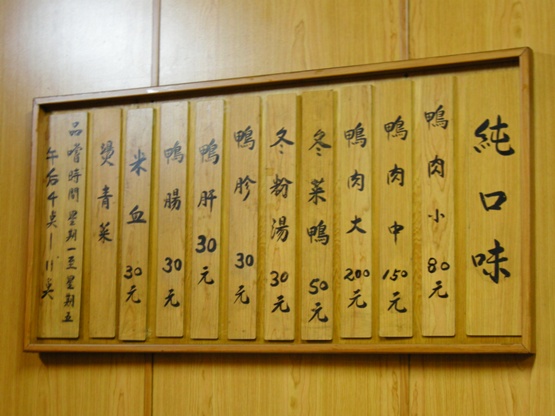 純口味
鴨肉小 80元
鴨肉中 150元
鴨肉大 200元
冬菜鴨 50元
冬粉湯 30元
鴨胗 30元
鴨肝 30元
鴨腸 30元
米血 30元
燙青菜
品嚐時間 星期一至星期五